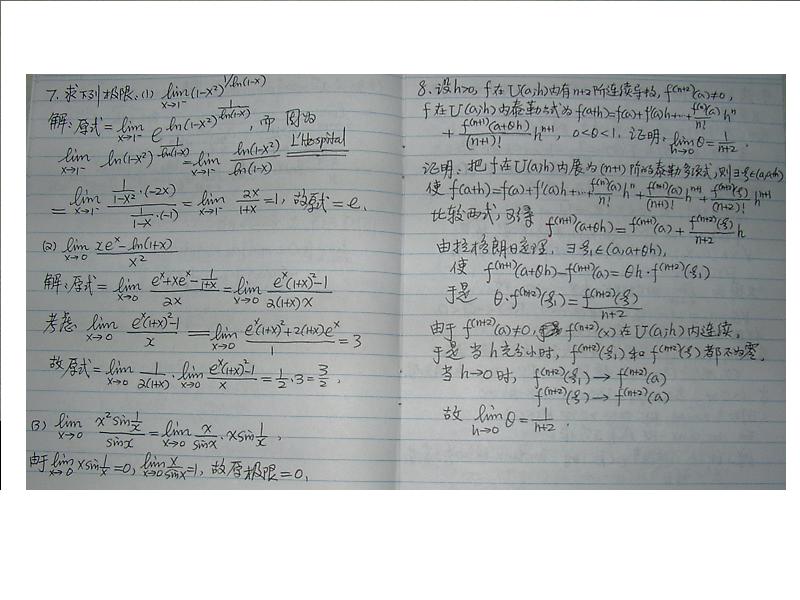 7. 求下列极限. (1) lim_{x→1⁻} (1-x²)^{1/ln(1-x)}
解: 原式 = lim_{x→1⁻} e^{ln(1-x²)^{1/ln(1-x)}}, 而 因为
lim_{x→1⁻} ln(1-x²)^{1/ln(1-x)} = lim_{x→1⁻} ln(1-x²)/ln(1-x) L'Hospital
= lim_{x→1⁻} (1/(1-x²)·(-2x))/(1/(1-x)·(-1)) = lim_{x→1⁻} 2x/(1+x) = 1, 故原式 = e.
(2) lim_{x→0} (xeˣ - ln(1+x))/x²
解: 原式 = lim_{x→0} (eˣ + xeˣ - 1/(1+x))/2x = lim_{x→0} (eˣ(1+x)² - 1)/(2(1+x)x)
考虑 lim_{x→0} (eˣ(1+x)² - 1)/x = lim_{x→0} (eˣ(1+x)² + 2(1+x)eˣ)/1 = 3
故原式 = lim_{x→0} 1/(2(1+x)) · lim_{x→0} (eˣ(1+x)² - 1)/x = 1/2 · 3 = 3/2.
(3) lim_{x→0} (x² sin(1/x))/sinx = lim_{x→0} x/sinx · x sin(1/x),
由于 lim_{x→0} x sin(1/x) = 0, lim_{x→0} x/sinx = 1, 故原极限 = 0.
8. 设 h>0, f 在 U(a;h) 内有 n+2 阶连续导数, f^{(n+2)}(a) ≠ 0,
f 在 U(a;h) 内泰勒公式为 f(a+h) = f(a) + f'(a)h + … + f^{(n)}(a)/n! hⁿ
+ f^{(n+1)}(a+θh)/(n+1)! h^{n+1}, 0<θ<1. 证明: lim_{h→0} θ = 1/(n+2).
证明: 把 f 在 U(a;h) 内展为 (n+1) 阶的泰勒多项式, 则 ∃ξ∈(a,a+h)
使 f(a+h) = f(a) + f'(a)h + … + f^{(n)}(a)/n! hⁿ + f^{(n+1)}(a)/(n+1)! h^{n+1} + f^{(n+2)}(ξ)/(n+2)! h^{n+1}
比较两式, 可得 f^{(n+1)}(a+θh) = f^{(n+1)}(a) + f^{(n+2)}(ξ)/(n+2) h
由拉格朗日定理, ∃ξ₁∈(a, a+θh),
使 f^{(n+1)}(a+θh) - f^{(n+1)}(a) = θh · f^{(n+2)}(ξ₁)
于是 θ · f^{(n+2)}(ξ₁) = f^{(n+2)}(ξ)/(n+2)
由于 f^{(n+2)}(a) ≠ 0, f^{(n+2)}(x) 在 U(a;h) 内连续,
于是 当 h 充分小时, f^{(n+2)}(ξ₁) 和 f^{(n+2)}(ξ) 都不为零.
当 h→0 时, f^{(n+2)}(ξ₁) → f^{(n+2)}(a)
f^{(n+2)}(ξ) → f^{(n+2)}(a)
故 lim_{h→0} θ = 1/(n+2).